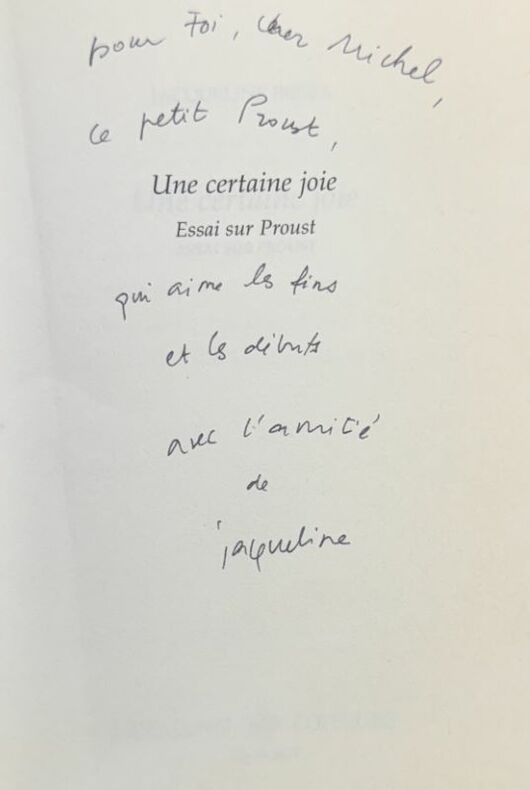 pour toi, cher Michel,
ce petit Proust,
Une certaine joie
Essai sur Proust
qui aime les fins
et les débuts
avec l'amitié
de
jacqueline